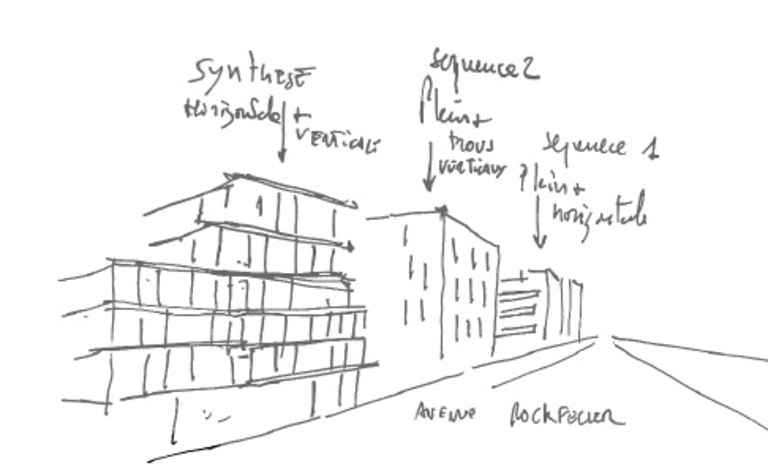 Synthese
Horizontale +
VERTICALE
sequence 2
Plein +
trous
VERTICAUX
sequence 1
Plein +
horizontale
AVENUE ROCKFELLER